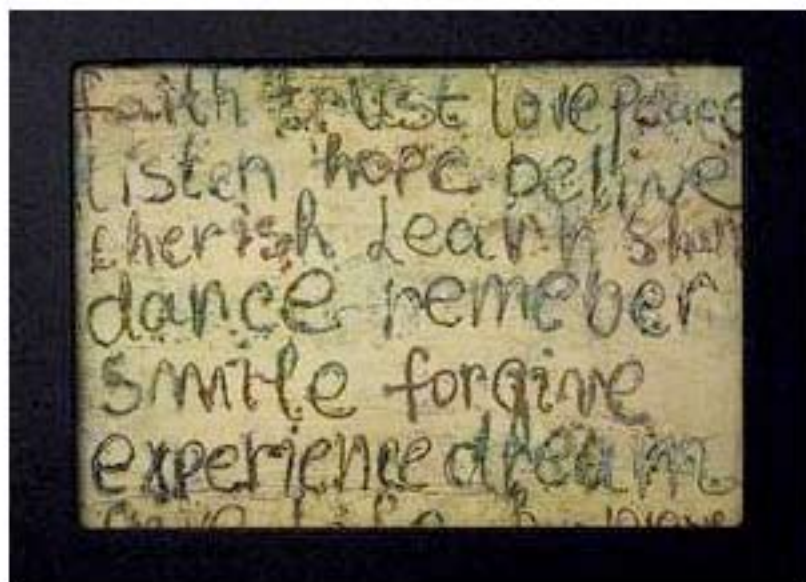 faith trust love peace
Listen hope belive
cherish Learn
dance remeber
smile forgive
experience dream